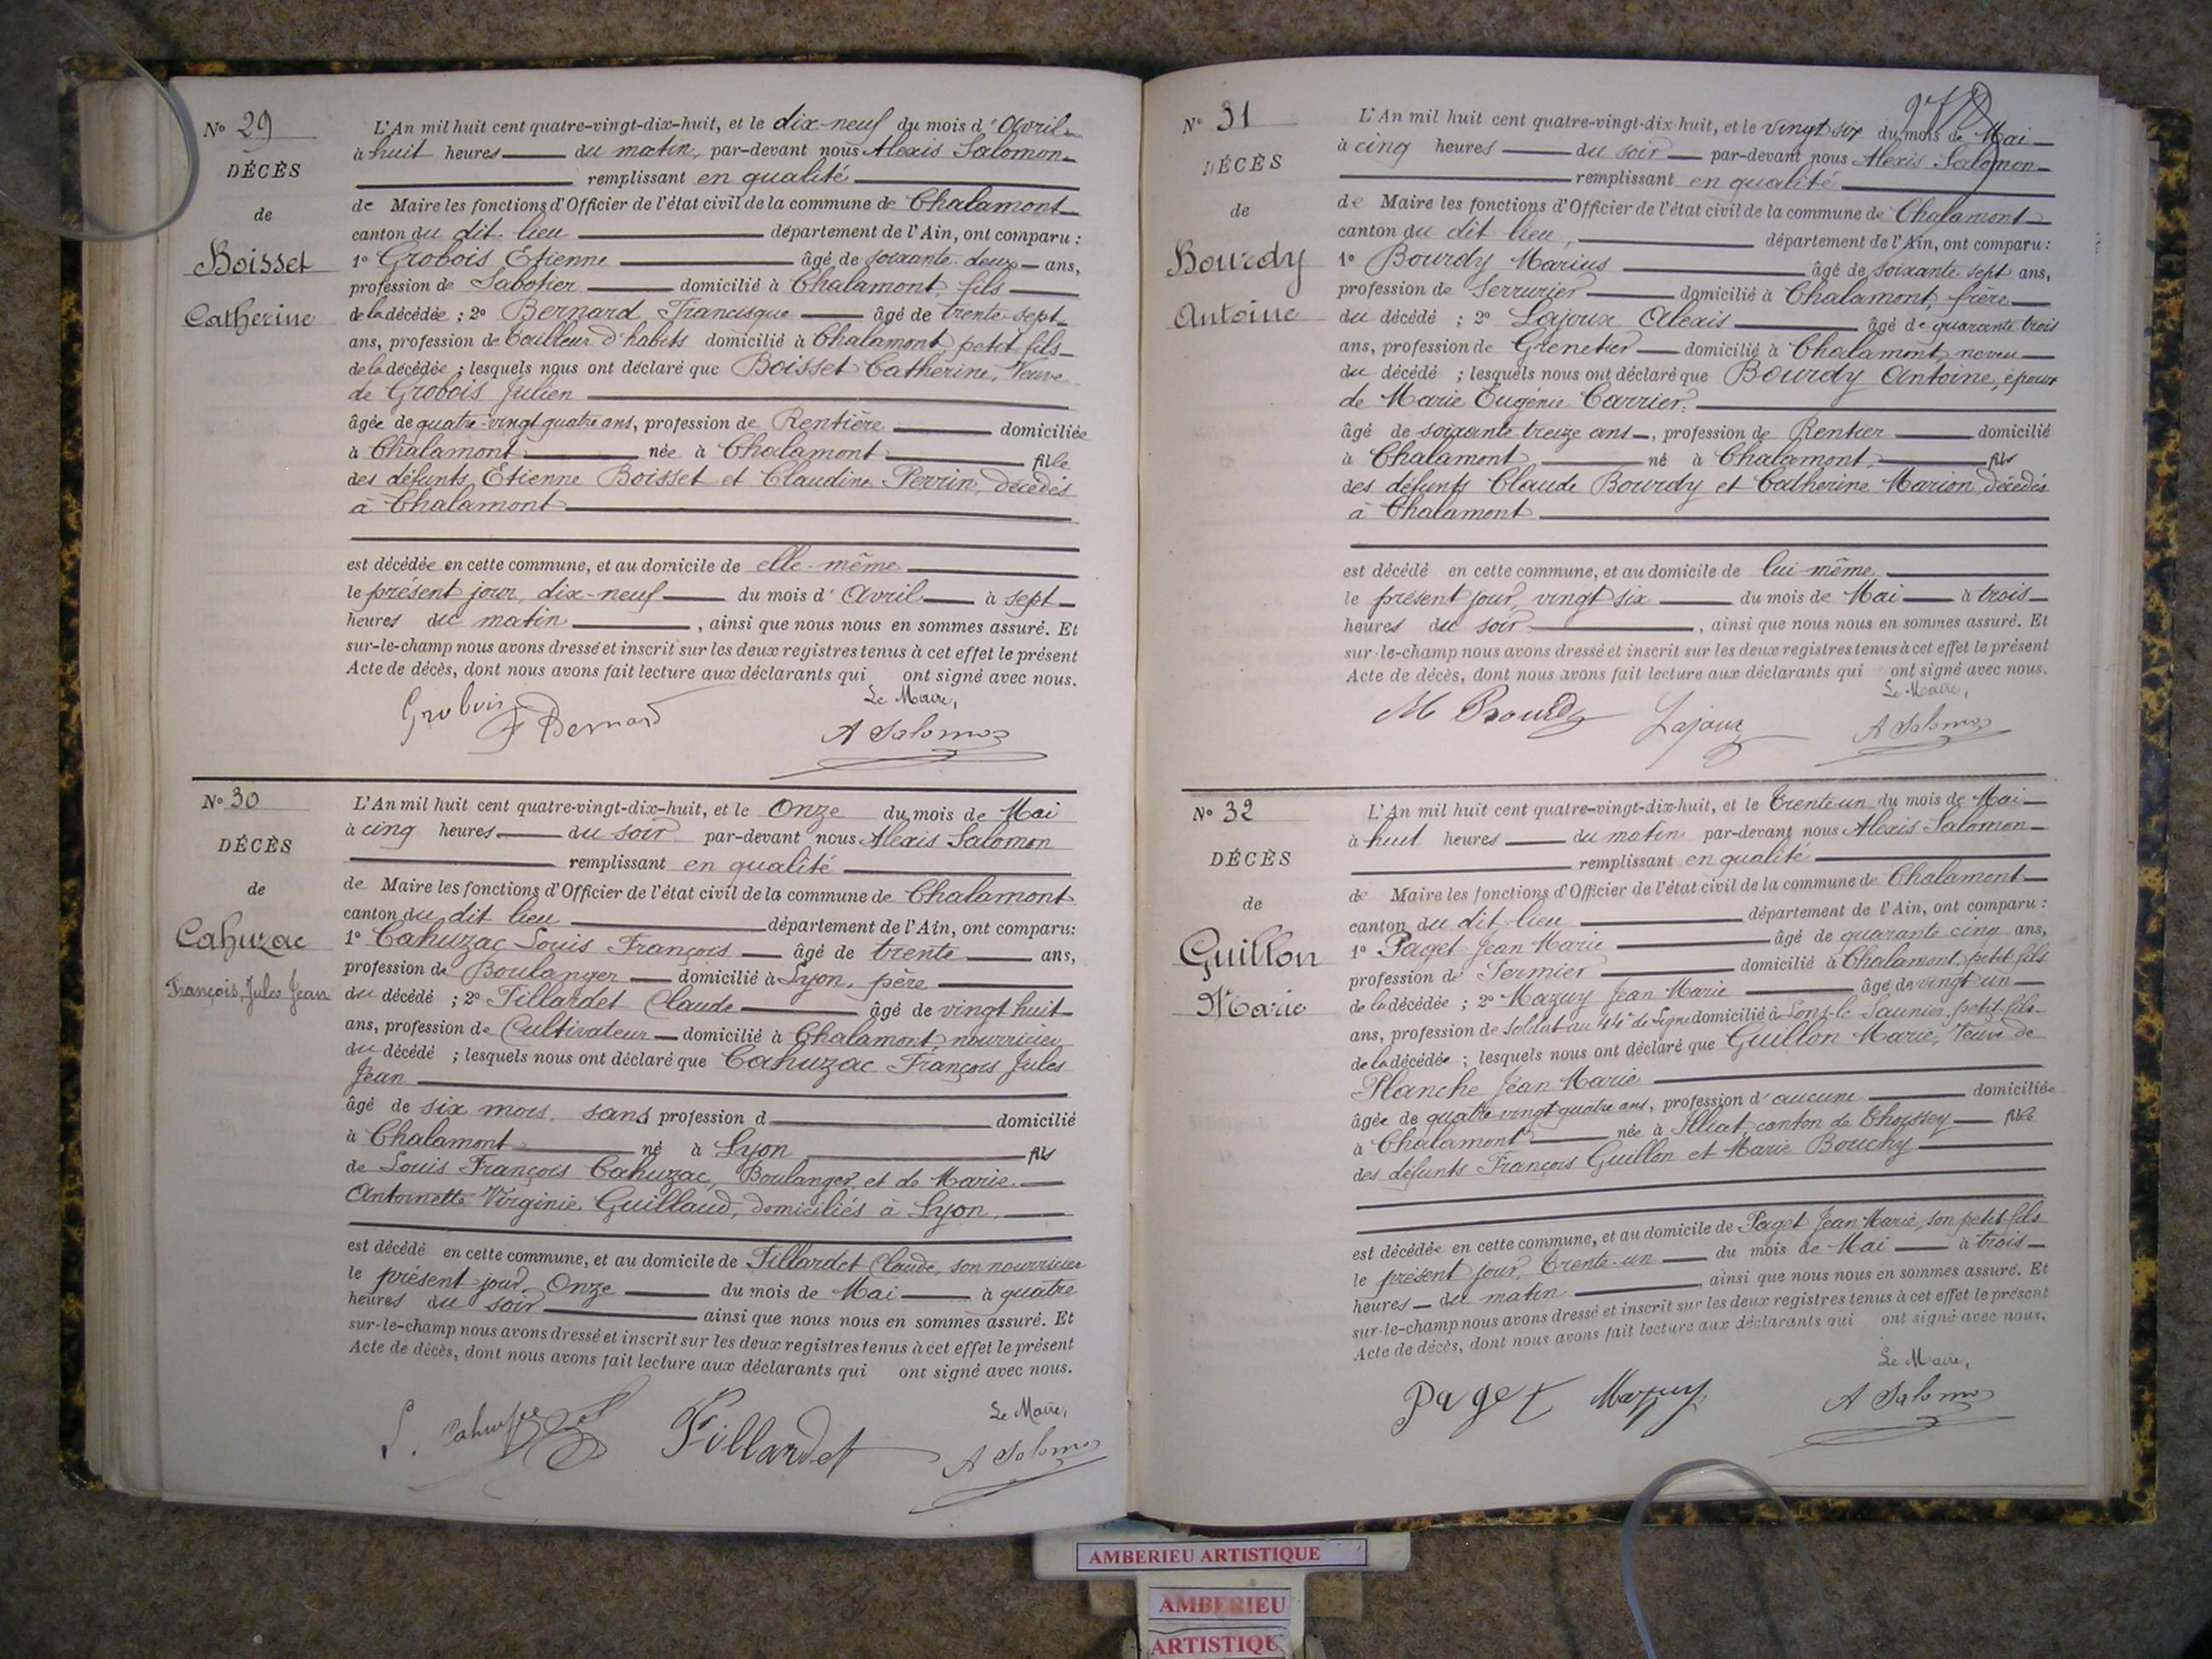 N° 29
DÉCÈS
de
Boisset
Catherine
L'An mil huit cent quatre-vingt-dix-huit, et le dix-neuf du mois d'Avril
à huit heures du matin, par-devant nous Alexis Salomon
remplissant en qualité
de Maire les fonctions d'Officier de l'état civil de la commune de Chalamont
canton du dit lieu département de l'Ain, ont comparu :
1° Grobois Etienne âgé de soixante-deux ans,
profession de Sabotier domicilié à Chalamont, fils
de la décédée ; 2° Bernard Francisque âgé de trente-sept
ans, profession de tailleur d'habits domicilié à Chalamont, petit fils
de la décédée ; lesquels nous ont déclaré que Boisset Catherine, Veuve
de Grobois Julien
âgée de quatre-vingt quatre ans, profession de Rentière domiciliée
à Chalamont née à Chalamont fille
des défunts Etienne Boisset et Claudine Perrin, décédés
à Chalamont
est décédée en cette commune, et au domicile de elle-même
le présent jour, dix-neuf du mois d'Avril à sept
heures du matin, ainsi que nous nous en sommes assuré. Et
sur-le-champ nous avons dressé et inscrit sur les deux registres tenus à cet effet le présent
Acte de décès, dont nous avons fait lecture aux déclarants qui ont signé avec nous.
Le Maire,
Grobois F Bernard A Salomon
N° 30
DÉCÈS
de
Cahuzac
François, Jules Jean
L'An mil huit cent quatre-vingt-dix-huit, et le Onze du mois de Mai
à cinq heures du soir par-devant nous Alexis Salomon
remplissant en qualité
de Maire les fonctions d'Officier de l'état civil de la commune de Chalamont
canton du dit lieu département de l'Ain, ont comparu:
1° Cahuzac Louis François âgé de trente ans,
profession de Boulanger domicilié à Lyon, père
du décédé ; 2° Fillardet Claude âgé de vingt huit
ans, profession de Cultivateur domicilié à Chalamont, nourricier
du décédé ; lesquels nous ont déclaré que Cahuzac François Jules
Jean
âgé de six mois, sans profession d domicilié
à Chalamont né à Lyon fils
de Louis François Cahuzac, Boulanger, et de Marie
Antoinette Virginie Guillaud, domiciliés à Lyon,
est décédé en cette commune, et au domicile de Fillardet Claude, son nourricier
le présent jour, Onze du mois de Mai à quatre
heures du soir ainsi que nous nous en sommes assuré. Et
sur-le-champ nous avons dressé et inscrit sur les deux registres tenus à cet effet le présent
Acte de décès, dont nous avons fait lecture aux déclarants qui ont signé avec nous.
Le Maire,
Fillardet A Salomon
N° 31
DÉCÈS
de
Bourdy
Antoine
L'An mil huit cent quatre-vingt-dix-huit, et le vingt six du mois de Mai
à cinq heures du soir par-devant nous Alexis Salomon
remplissant en qualité
de Maire les fonctions d'Officier de l'état civil de la commune de Chalamont
canton du dit lieu, département de l'Ain, ont comparu :
1° Bourdy Marius âgé de soixante sept ans,
profession de Serrurier domicilié à Chalamont, frère
du décédé ; 2° Lajoux Alexis âgé de quarante trois
ans, profession de Grenetier domicilié à Chalamont, neveu
du décédé ; lesquels nous ont déclaré que Bourdy Antoine, époux
de Marie Eugénie Carrier,
âgé de soixante treize ans, profession de Rentier domicilié
à Chalamont né à Chalamont, fils
des défunts Claude Bourdy et Catherine Marion, décédés
à Chalamont
est décédé en cette commune, et au domicile de lui-même
le présent jour, vingt six du mois de Mai à trois
heures du soir, ainsi que nous nous en sommes assuré. Et
sur-le-champ nous avons dressé et inscrit sur les deux registres tenus à cet effet le présent
Acte de décès, dont nous avons fait lecture aux déclarants qui ont signé avec nous.
Le Maire,
M Bourdy Lajoux A Salomon
N° 32
DÉCÈS
de
Guillon
Marie
L'An mil huit cent quatre-vingt-dix-huit, et le trente-un du mois de Mai
à huit heures du matin par-devant nous Alexis Salomon
remplissant en qualité
de Maire les fonctions d'Officier de l'état civil de la commune de Chalamont
canton du dit lieu département de l'Ain, ont comparu :
1° Paget Jean Marie âgé de quarante cinq ans,
profession de Fermier domicilié à Chalamont, petit fils
de la décédée ; 2° Mazuy Jean Marie âgé de vingt un
ans, profession de Soldat au 44e de Ligne domicilié à Lons-le Saunier, petit-fils
de la décédée ; lesquels nous ont déclaré que Guillon Marie, Veuve de
Planche Jean Marie
âgée de quatre vingt quatre ans, profession d'aucune domiciliée
à Chalamont née à Illiat, canton de Thoissey fille
des défunts François Guillon et Marie Bouchy
est décédée en cette commune, et au domicile de Paget Jean Marie, son petit-fils
le présent jour, trente-un du mois de Mai à trois
heures du matin, ainsi que nous nous en sommes assuré. Et
sur-le-champ nous avons dressé et inscrit sur les deux registres tenus à cet effet le présent
Acte de décès, dont nous avons fait lecture aux déclarants qui ont signé avec nous.
Le Maire,
Paget Mazuy A Salomon
AMBERIEU ARTISTIQUE
AMBERIEU
ARTISTIQUE